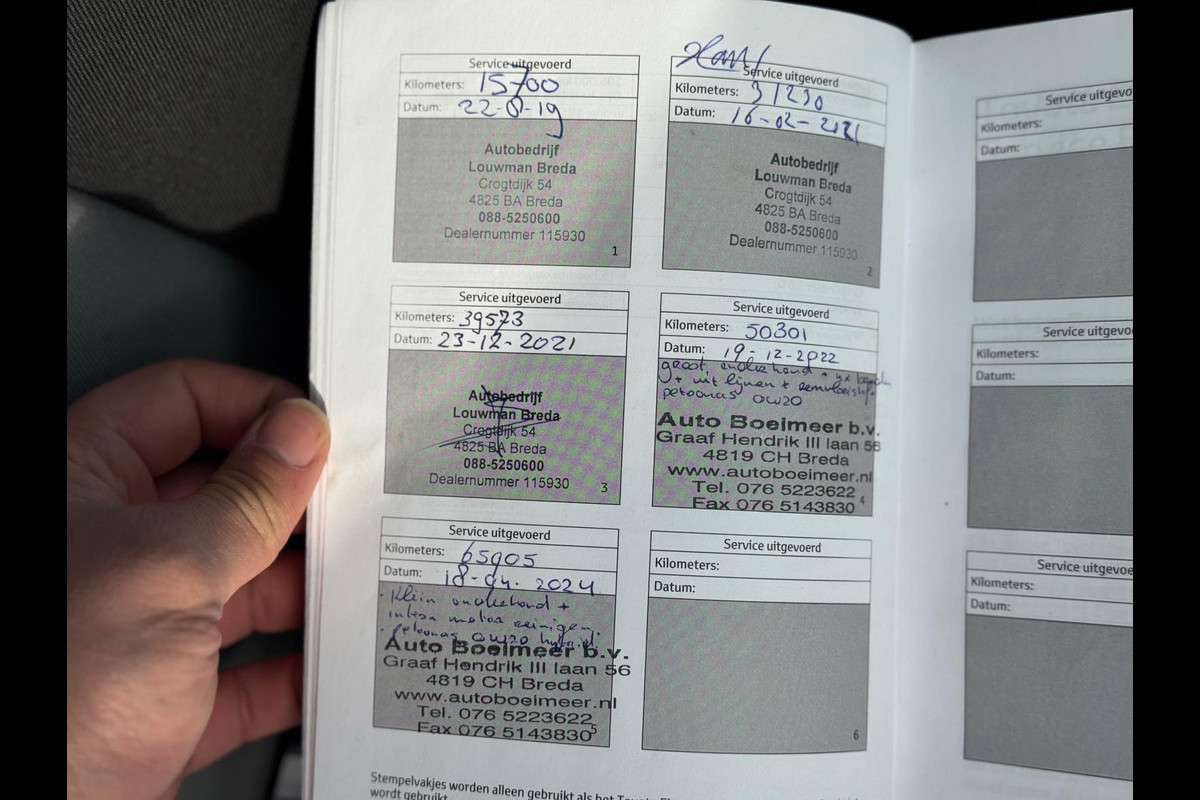 Service uitgevoerd
Kilometers: 15700
Datum: 22-8-19
Autobedrijf
Louwman Breda
Crogtdijk 54
4825 BA Breda
088-5250600
Dealernummer 115930
1
Service uitgevoerd
Kilometers: 31230
Datum: 16-02-2021
Autobedrijf
Louwman Breda
Crogtdijk 54
4825 BA Breda
088-5250600
Dealernummer 115930
2
Service uitgevoerd
Kilometers: 39573
Datum: 23-12-2021
Autobedrijf
Louwman Breda
Crogtdijk 54
4825 BA Breda
088-5250600
Dealernummer 115930
3
Service uitgevoerd
Kilometers: 50301
Datum: 19-12-2022
groot onderhoud + 4x
+ uitlijnen + remvloeistof
petronas 0W20
Auto Boeimeer b.v.
Graaf Hendrik III laan 56
4819 CH Breda
www.autoboeimeer.nl
Tel. 076 5223622
4
Fax 076 5143830
Service uitgevoerd
Kilometers: 65905
Datum: 18-04-2024
Klein onderhoud +
motor reinigen.
petronas 0W20 hybrid.
Auto Boeimeer b.v.
Graaf Hendrik III laan 56
4819 CH Breda
www.autoboeimeer.nl
Tel. 076 5223622
5
Fax 076 5143830
Service uitgevoerd
Kilometers:
Datum:
6
Stempelvakjes worden alleen gebruikt als het
wordt gebruikt
Service uitgevo
Kilometers:
Datum:
Service uitgevo
Kilometers:
Datum:
Service uitgevoe
Kilometers:
Datum: